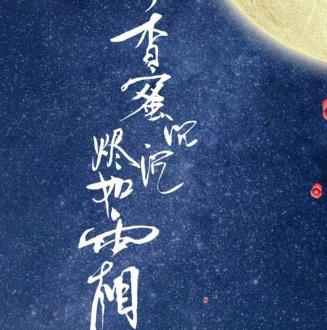 香蜜沉沉烬如霜